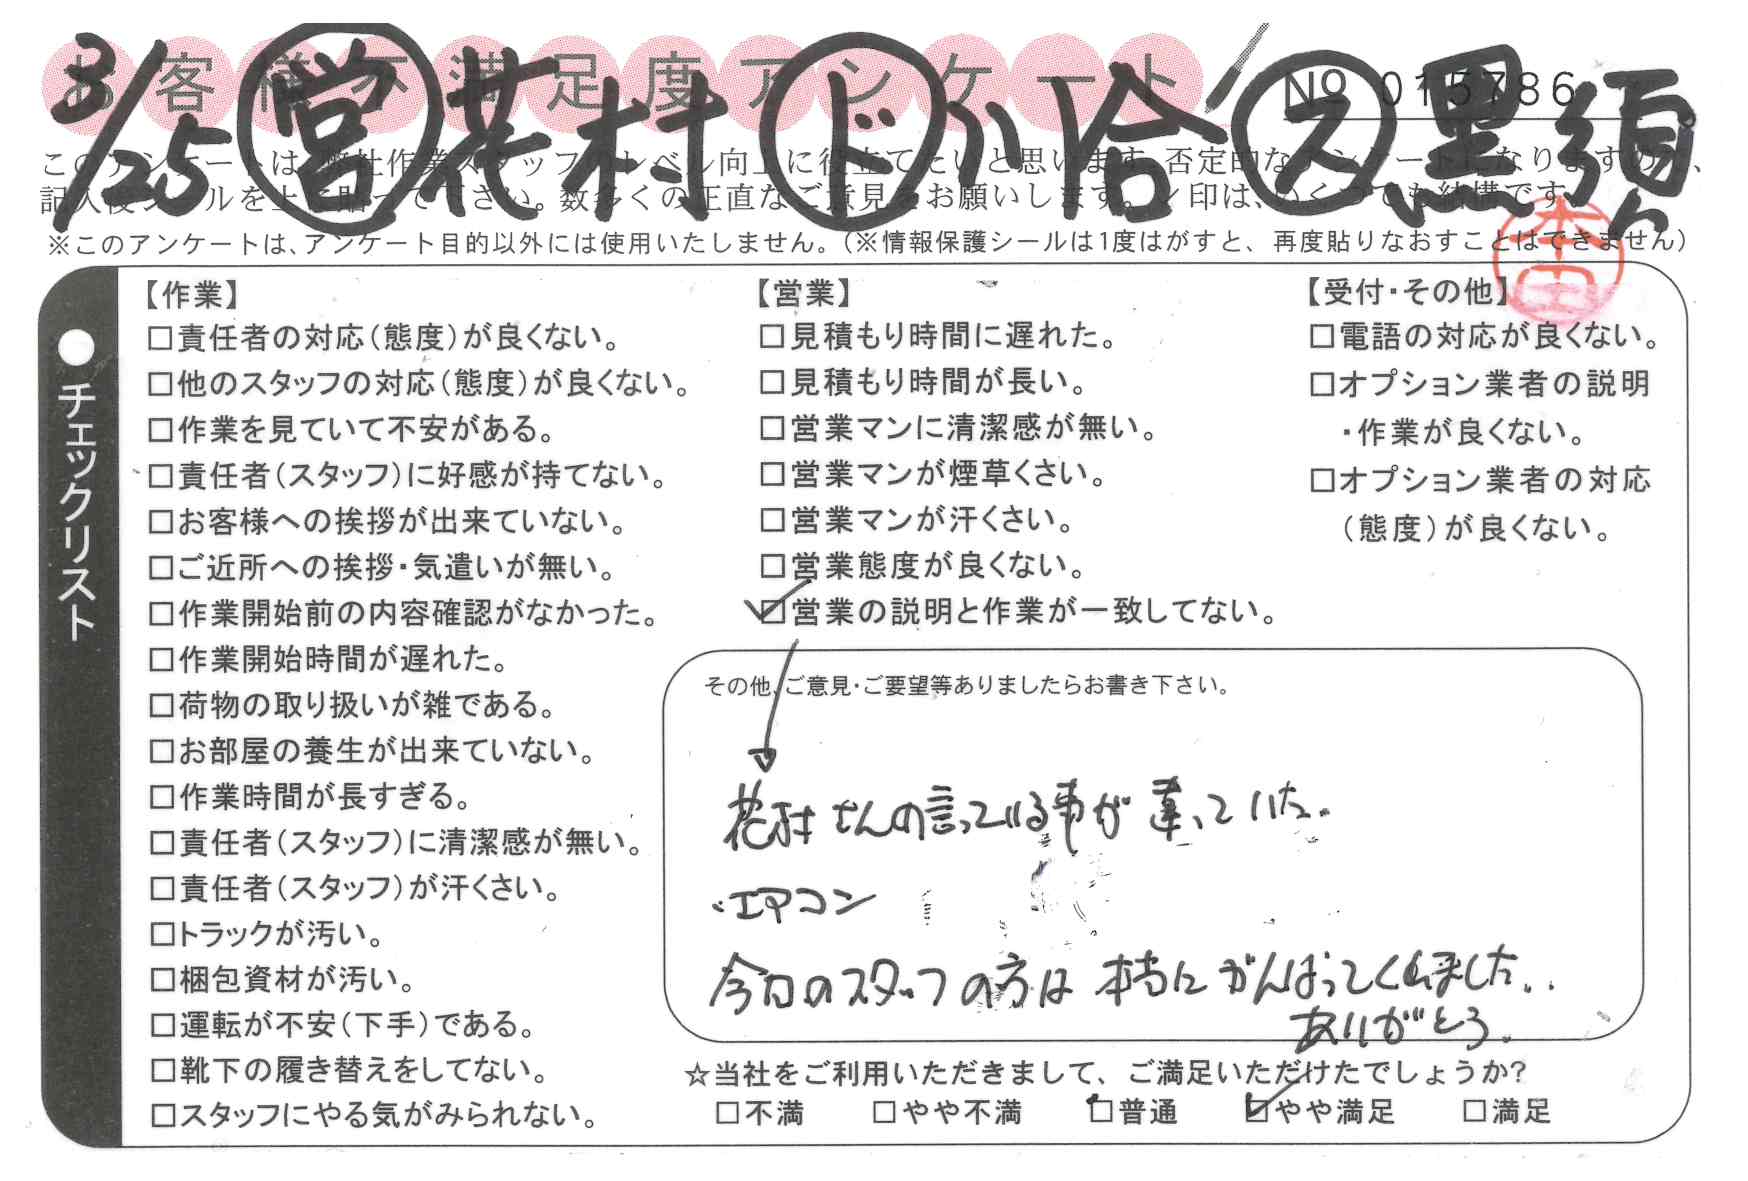 お客様不満足度アンケート
3/25 営 花村 ド 小合 ス 黒須
No 015786
このアンケートは、弊社作業スタッフのレベル向上に役立てたいと思います。否定的なアンケートになりますので、
記入後シールを上に貼って下さい。数多くの正直なご意見をお願いします。✓印は、いくつでも結構です。
※このアンケートは、アンケート目的以外には使用いたしません。（※情報保護シールは1度はがすと、再度貼りなおすことはできません）
本田
●チェックリスト
【作業】
□責任者の対応（態度）が良くない。
□他のスタッフの対応（態度）が良くない。
□作業を見ていて不安がある。
□責任者（スタッフ）に好感が持てない。
□お客様への挨拶が出来ていない。
□ご近所への挨拶・気遣いが無い。
□作業開始前の内容確認がなかった。
□作業開始時間が遅れた。
□荷物の取り扱いが雑である。
□お部屋の養生が出来ていない。
□作業時間が長すぎる。
□責任者（スタッフ）に清潔感が無い。
□責任者（スタッフ）が汗くさい。
□トラックが汚い。
□梱包資材が汚い。
□運転が不安（下手）である。
□靴下の履き替えをしてない。
□スタッフにやる気がみられない。
【営業】
□見積もり時間に遅れた。
□見積もり時間が長い。
□営業マンに清潔感が無い。
□営業マンが煙草くさい。
□営業マンが汗くさい。
□営業態度が良くない。
☑営業の説明と作業が一致してない。
【受付・その他】
□電語の対応が良くない。
□オプション業者の説明
・作業が良くない。
□オプション業者の対応
（態度）が良くない。
その他、ご意見・ご要望等ありましたらお書き下さい。
花村さんの言っている事が違っていた。
・エアコン
今日のスタッフの方は本当にがんばってくれました..
ありがとう。
☆当社をご利用いただきまして、ご満足いただけたでしょうか？
□不満 □やや不満 □普通 ☑やや満足 □満足